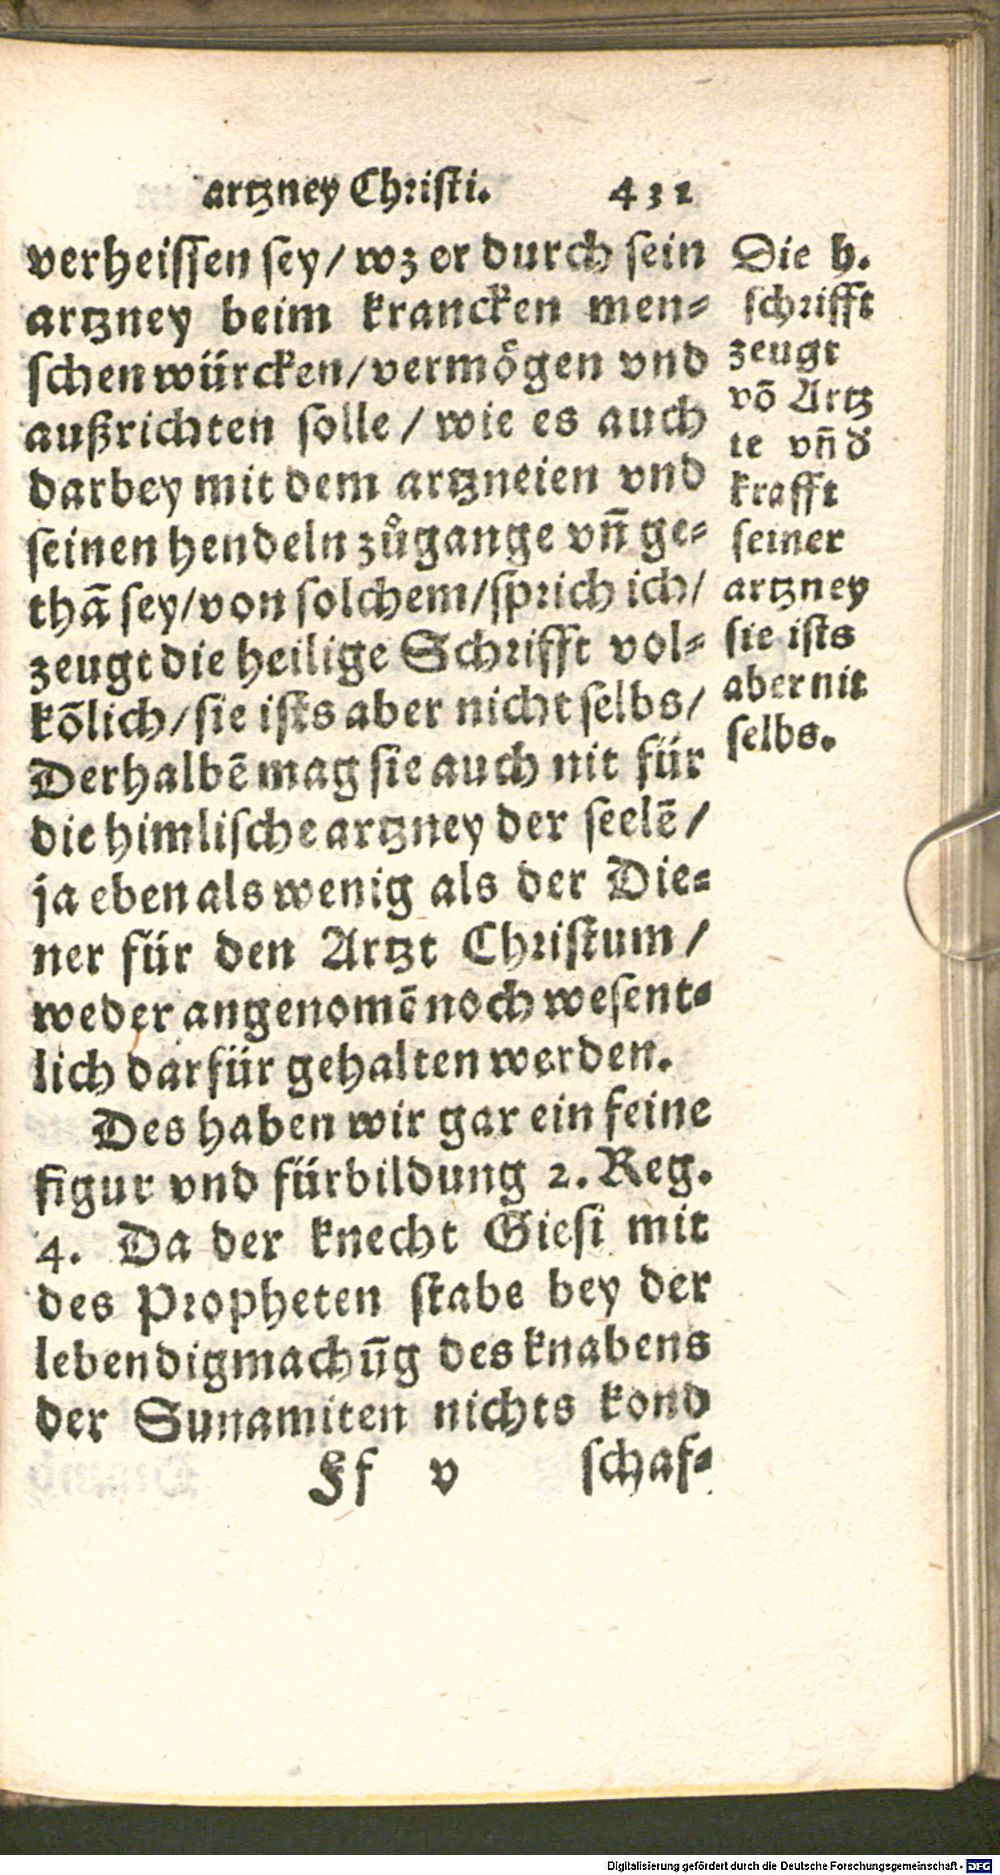 artzney Christi. 431
verheissen sey/ wz er durch sein
artzney beim krancken men⸗
schen würcken/ vermögen vnd
außrichten solle / wie es auch
darbey mit dem artzneien vnd
seinen hendeln zůgange vñ ge⸗
thã sey/ von solchem/ sprich ich/
zeugt die heilige Schrifft vol⸗
kõlich/ sie ists aber nicht selbs/
Derhalbẽ mag sie auch nit für
die himlische artzney der seelẽ /
ja eben als wenig als der Die⸗
ner für den Artzt Christum /
weder angenomẽ noch wesent⸗
lich darfür gehalten werden.
Des haben wir gar ein feine
figur vnd fürbildung 2. Reg.
4. Da der knecht Giesi mit
des Propheten stabe bey der
lebendigmachũg des knabens
der Sunamiten nichts kond
Ff v schaf⸗
Die h.
schrifft
zeugt
võ Artz
te vñ d̓
krafft
seiner
artzney
sie ists
aber nit
selbs.
Digitalisierung gefördert durch die Deutsche Forschungsgemeinschaft - DFG